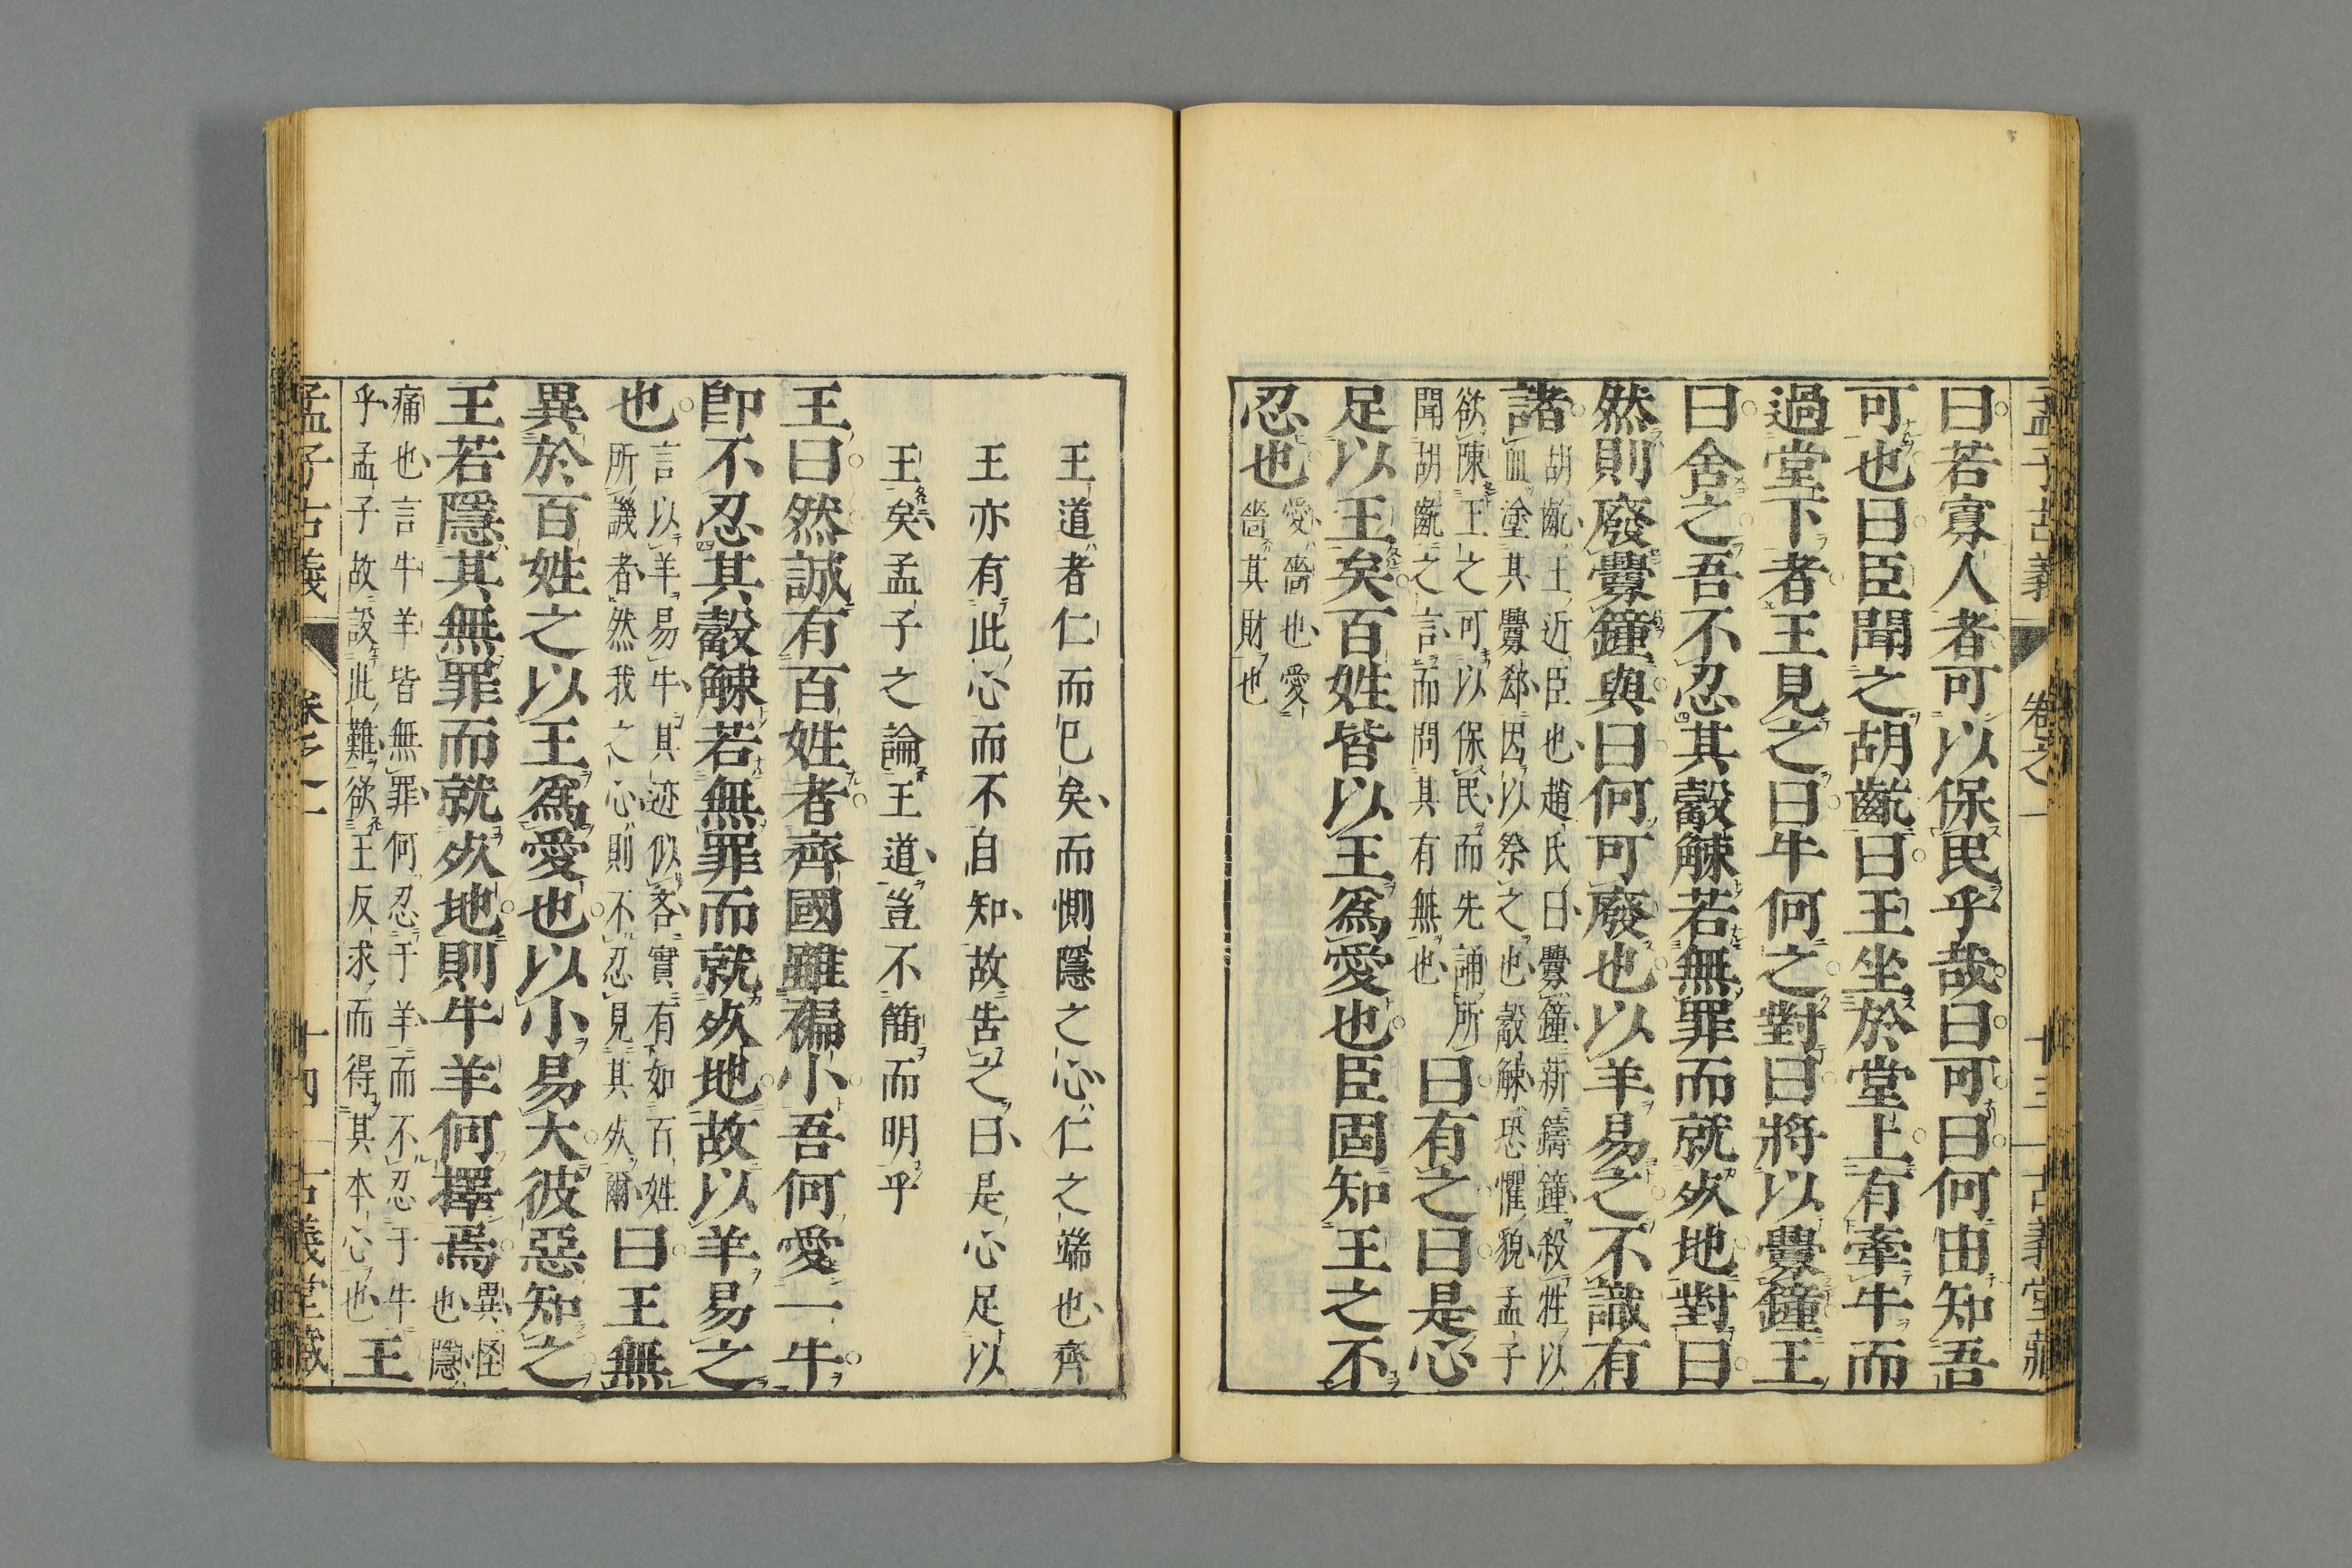 孟子古義 卷之一 十三 古義堂藏
曰若寡人者可以保民乎哉曰可曰何由知吾
可也曰臣聞之胡齕曰王坐於堂上有牽牛而
過堂下者王見之曰牛何之對曰將以釁鐘王
曰舍之吾不忍其觳觫若無罪而就死地對曰
然則廢釁鐘與曰何可廢也以羊易之不識有
諸
胡齕王近臣也趙氏曰釁鐘新鑄鐘殺牲以
血塗其釁郄因以祭之也觳觫恐懼貌孟子
欲陳王之可以保民而先誦所
聞胡齕之言而問其有無也
曰有之曰是心
足以王矣百姓皆以王爲愛也臣固知王之不
忍也
愛嗇也愛
嗇其財也
王道者仁而已矣而惻隱之心仁之端也齊
王亦有此心而不自知故告之曰是心足以
王矣孟子之論王道豈不簡而明乎
王曰然誠有百姓者齊國雖褊小吾何愛一牛
卽不忍其觳觫若無罪而就死地故以羊易之
也
言以羊易牛其迹似吝實有如百姓
所譏者然我之心則不不忍見其死爾
曰王無
異於百姓之以王爲愛也以小易大彼惡知之
王若隱其無罪而就死地則牛羊何擇焉
異怪
也隱
痛也言牛羊皆無罪何忍于羊而不忍于牛
乎孟子故設此難欲王反求而得其本心也
王
孟子古義 卷之一 十四 古義堂藏